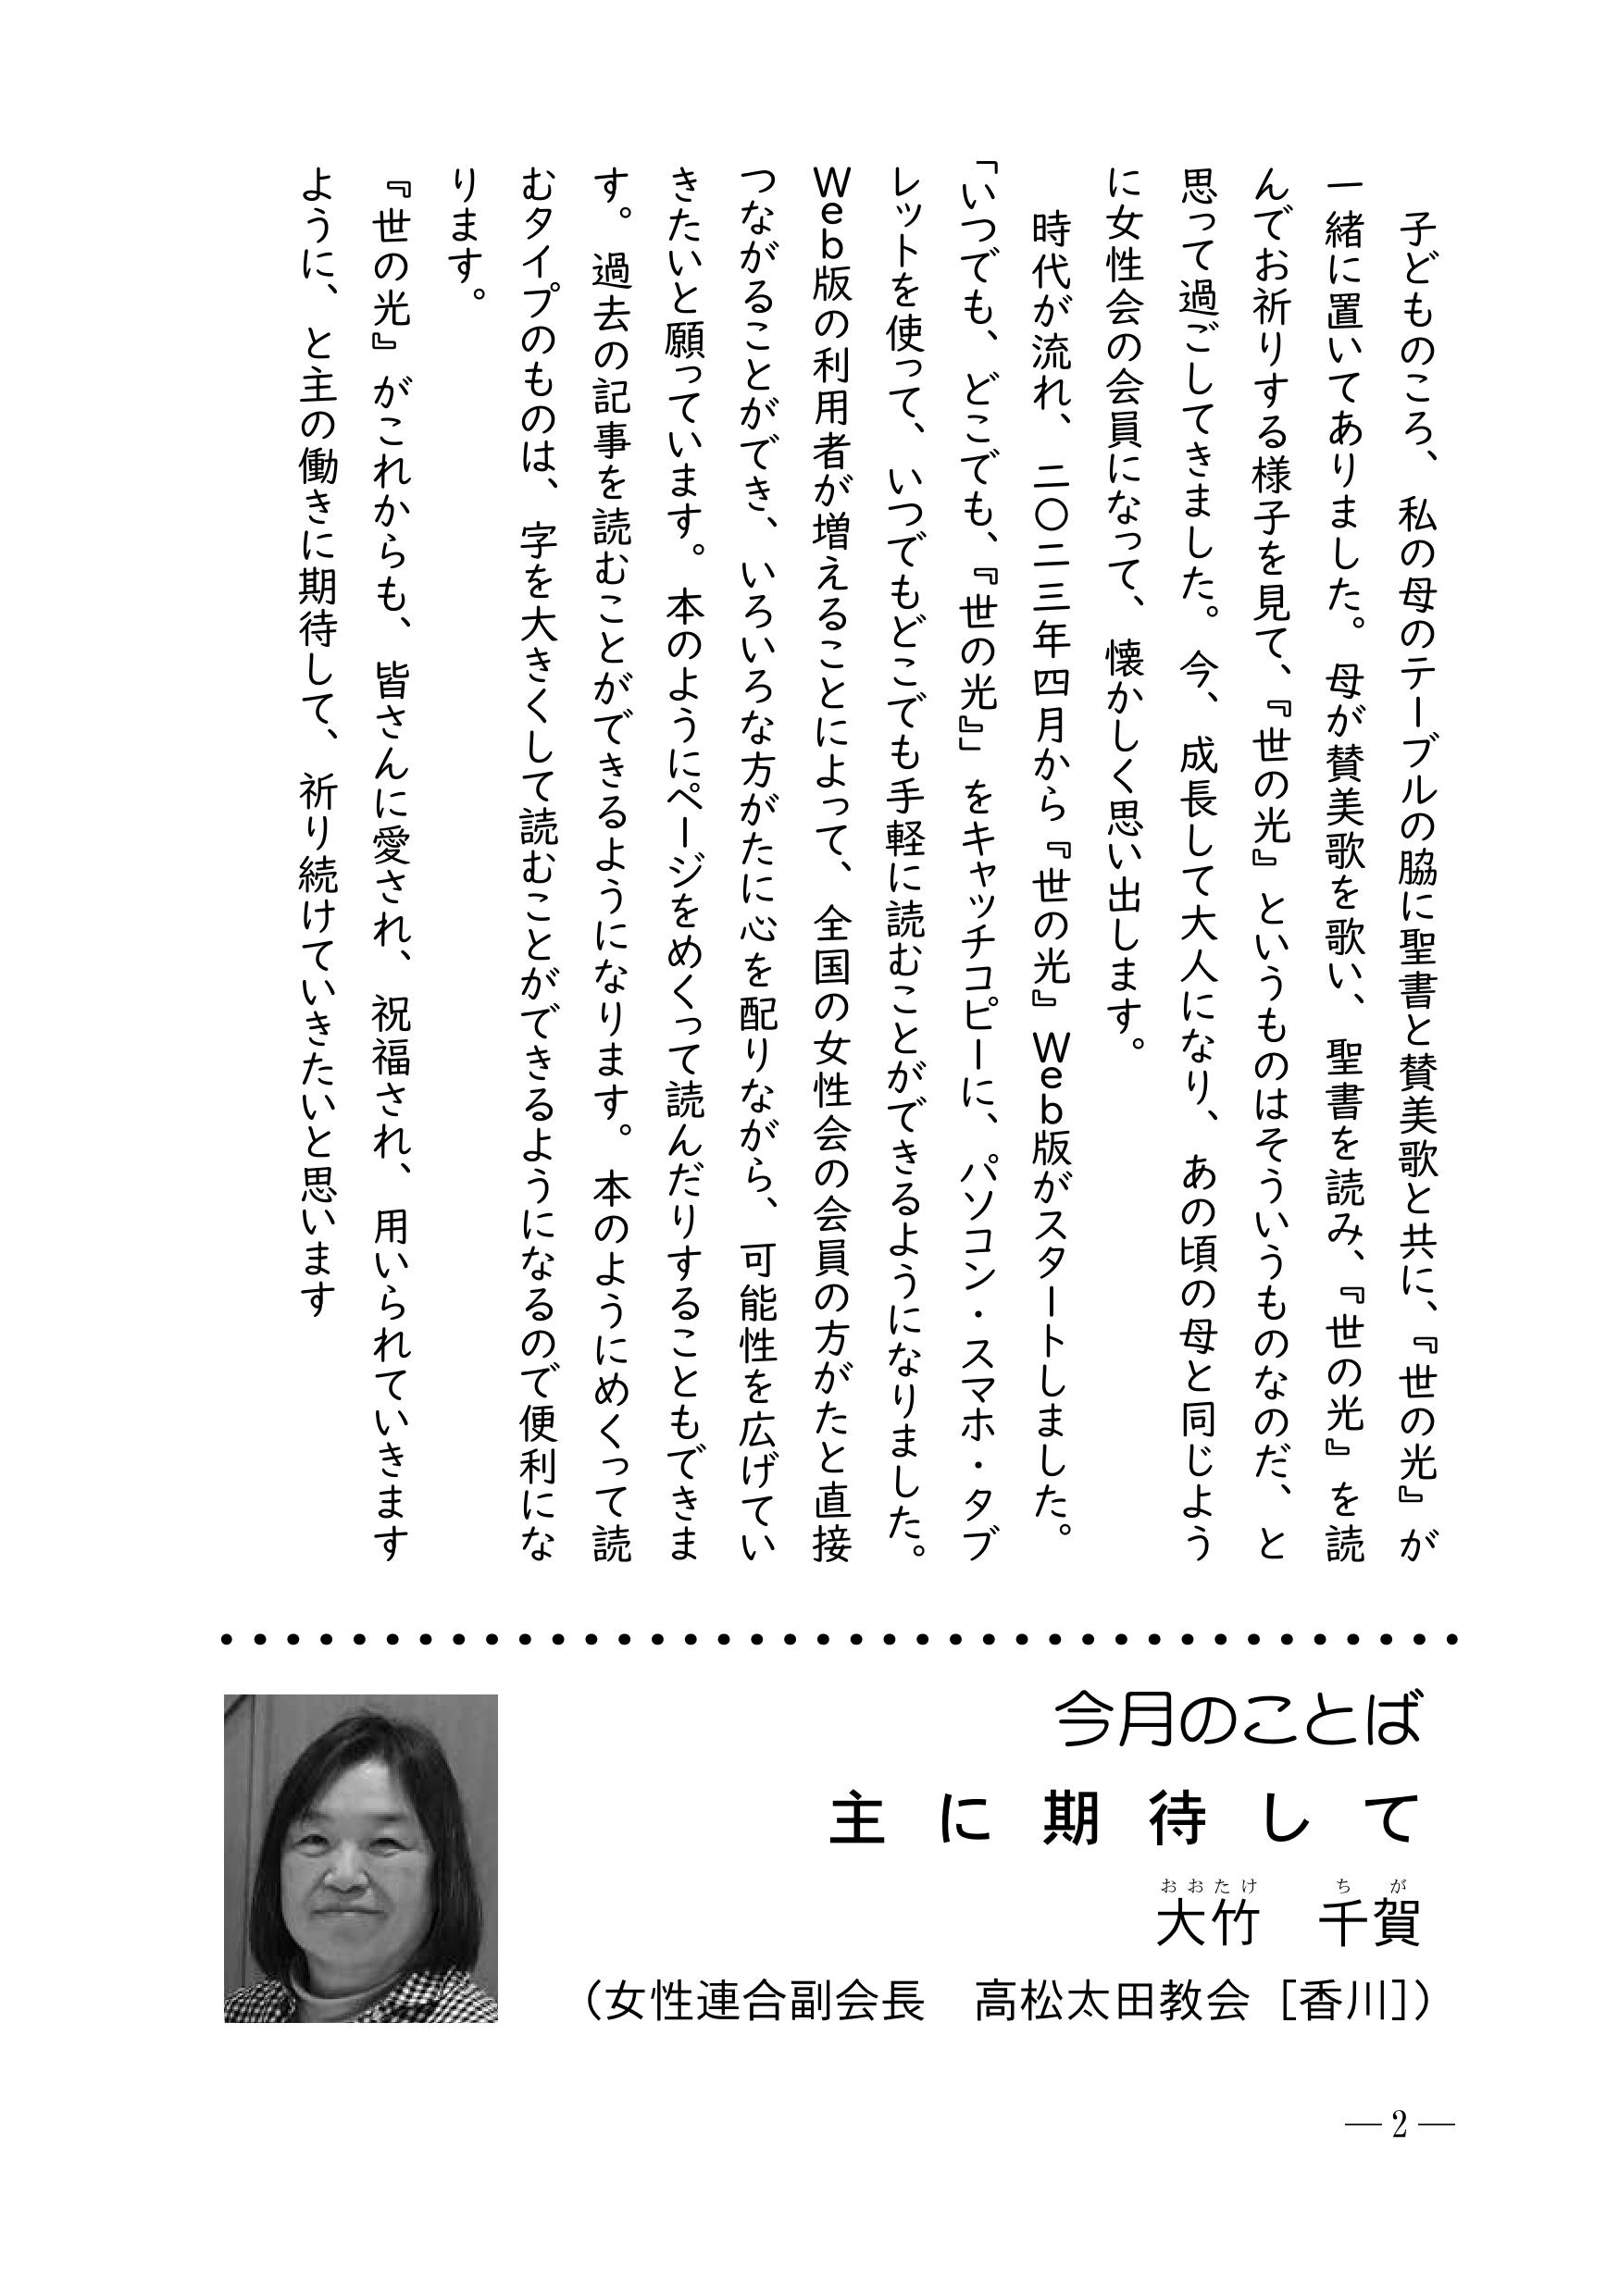 子どものころ、私の母のテーブルの脇に聖書と賛美歌と共に、『世の光』が
一緒に置いてありました。母が賛美歌を歌い、聖書を読み、『世の光』を読
んでお祈りする様子を見て、『世の光』というものはそういうものなのだ、と
思って過ごしてきました。今、成長して大人になり、あの頃の母と同じよう
に女性会の会員になって、懐かしく思い出します。
時代が流れ、二〇二三年四月から『世の光』Web版がスタートしました。
「いつでも、どこでも、『世の光』」をキャッチコピーに、パソコン・スマホ・タブ
レットを使って、いつでもどこでも手軽に読むことができるようになりました。
Web版の利用者が増えることによって、全国の女性会の会員の方がたと直接
つながることができ、いろいろな方がたに心を配りながら、可能性を広げてい
きたいと願っています。本のようにページをめくって読んだりすることもできま
す。過去の記事を読むことができるようになります。本のようにめくって読
むタイプのものは、字を大きくして読むことができるようになるので便利にな
ります。
『世の光』がこれからも、皆さんに愛され、祝福され、用いられていきます
ように、と主の働きに期待して、祈り続けていきたいと思います
今月のことば
主に期待して
おおたけ ちが
大竹 千賀
（女性連合副会長 高松太田教会［香川］）
— 2 —